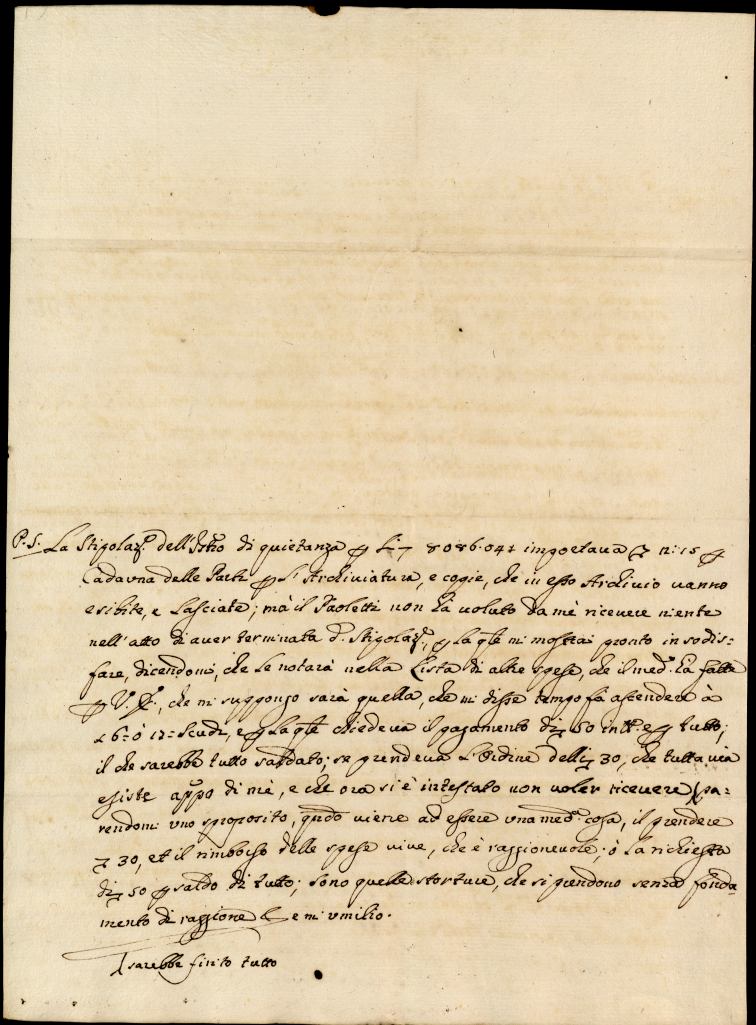 P.S. La Stipolaz.e dell'Istro di quietanza p L. 8086.04 importava n: 15 p
Cadauna delle Parti p l'Archiviatura, e copie, che in esso Archivio vanno
esibite, e lasciate; mà il Paoletti non hà voluto da mè ricevere niente
nell'atto di aver terminata d.a Stipolaz.e, p la qle mi mostrai pronto in sodis=
fare, dicendomi, che le notarà nella Lista di altre spese, che il med.o hà fatta
p V.S., che mi suppongo sarà quella, che mi disse tempo fà ascendere à
16= ò 17= Scudi, e p la qle chiedeva il pagamento di 50 in tt.o e p tutto;
il che sarebbe tutto saldato; se prendeva l'Ordine delli 30, che tutta via
esiste appo di mè, e che ora si è intestato non voler ricevere pa=
rendomi uno sproposito, qndo viene ad essere una med.a cosa, il prendere
30, et il rimborso delle spese vive, che è raggionevole; ò la richiesta
di 50 p saldo di tutto; sono quelle storture, che si prendono senza fonda=
mento di raggione e mi umilio.
sarebbe finito tutto